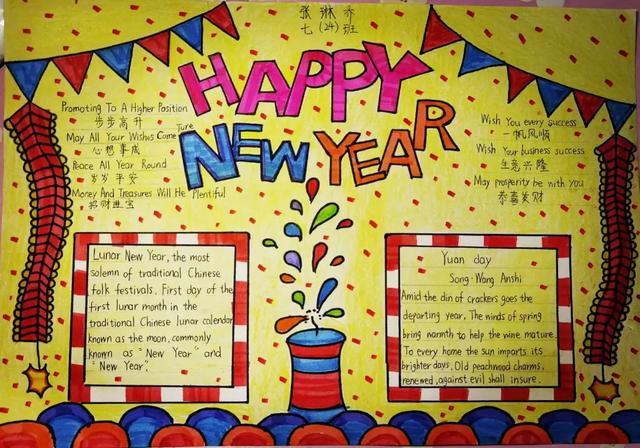 张琳乔
七(24)班
HAPPY
NEW YEAR
Promoting To A Higher Position
步步高升
May All Your Wishes Come Ture
心想事成
Peace All Year Round
岁岁平安
Money And Treasures Will He Plentiful
招财进宝
Wish You every success
一帆风顺
Wish Your business success
生意兴隆
May prosperity be with you
恭喜发财
Lunar New Year, the most
solemn of traditional Chinese
folk festivals. First day of the
first lunar month in the
traditional Chinese lunar calendar,
known as the moon, commonly
known as "New Year" and
"New Year".
Yuan day
Song·Wang Anshi
Amid the din of crackers goes the
departing year. The winds of spring
bring warmth to help the wine mature.
To every home the sun imparts its
brighter days. Old peachwood charms,
renewed, against evil shall insure.